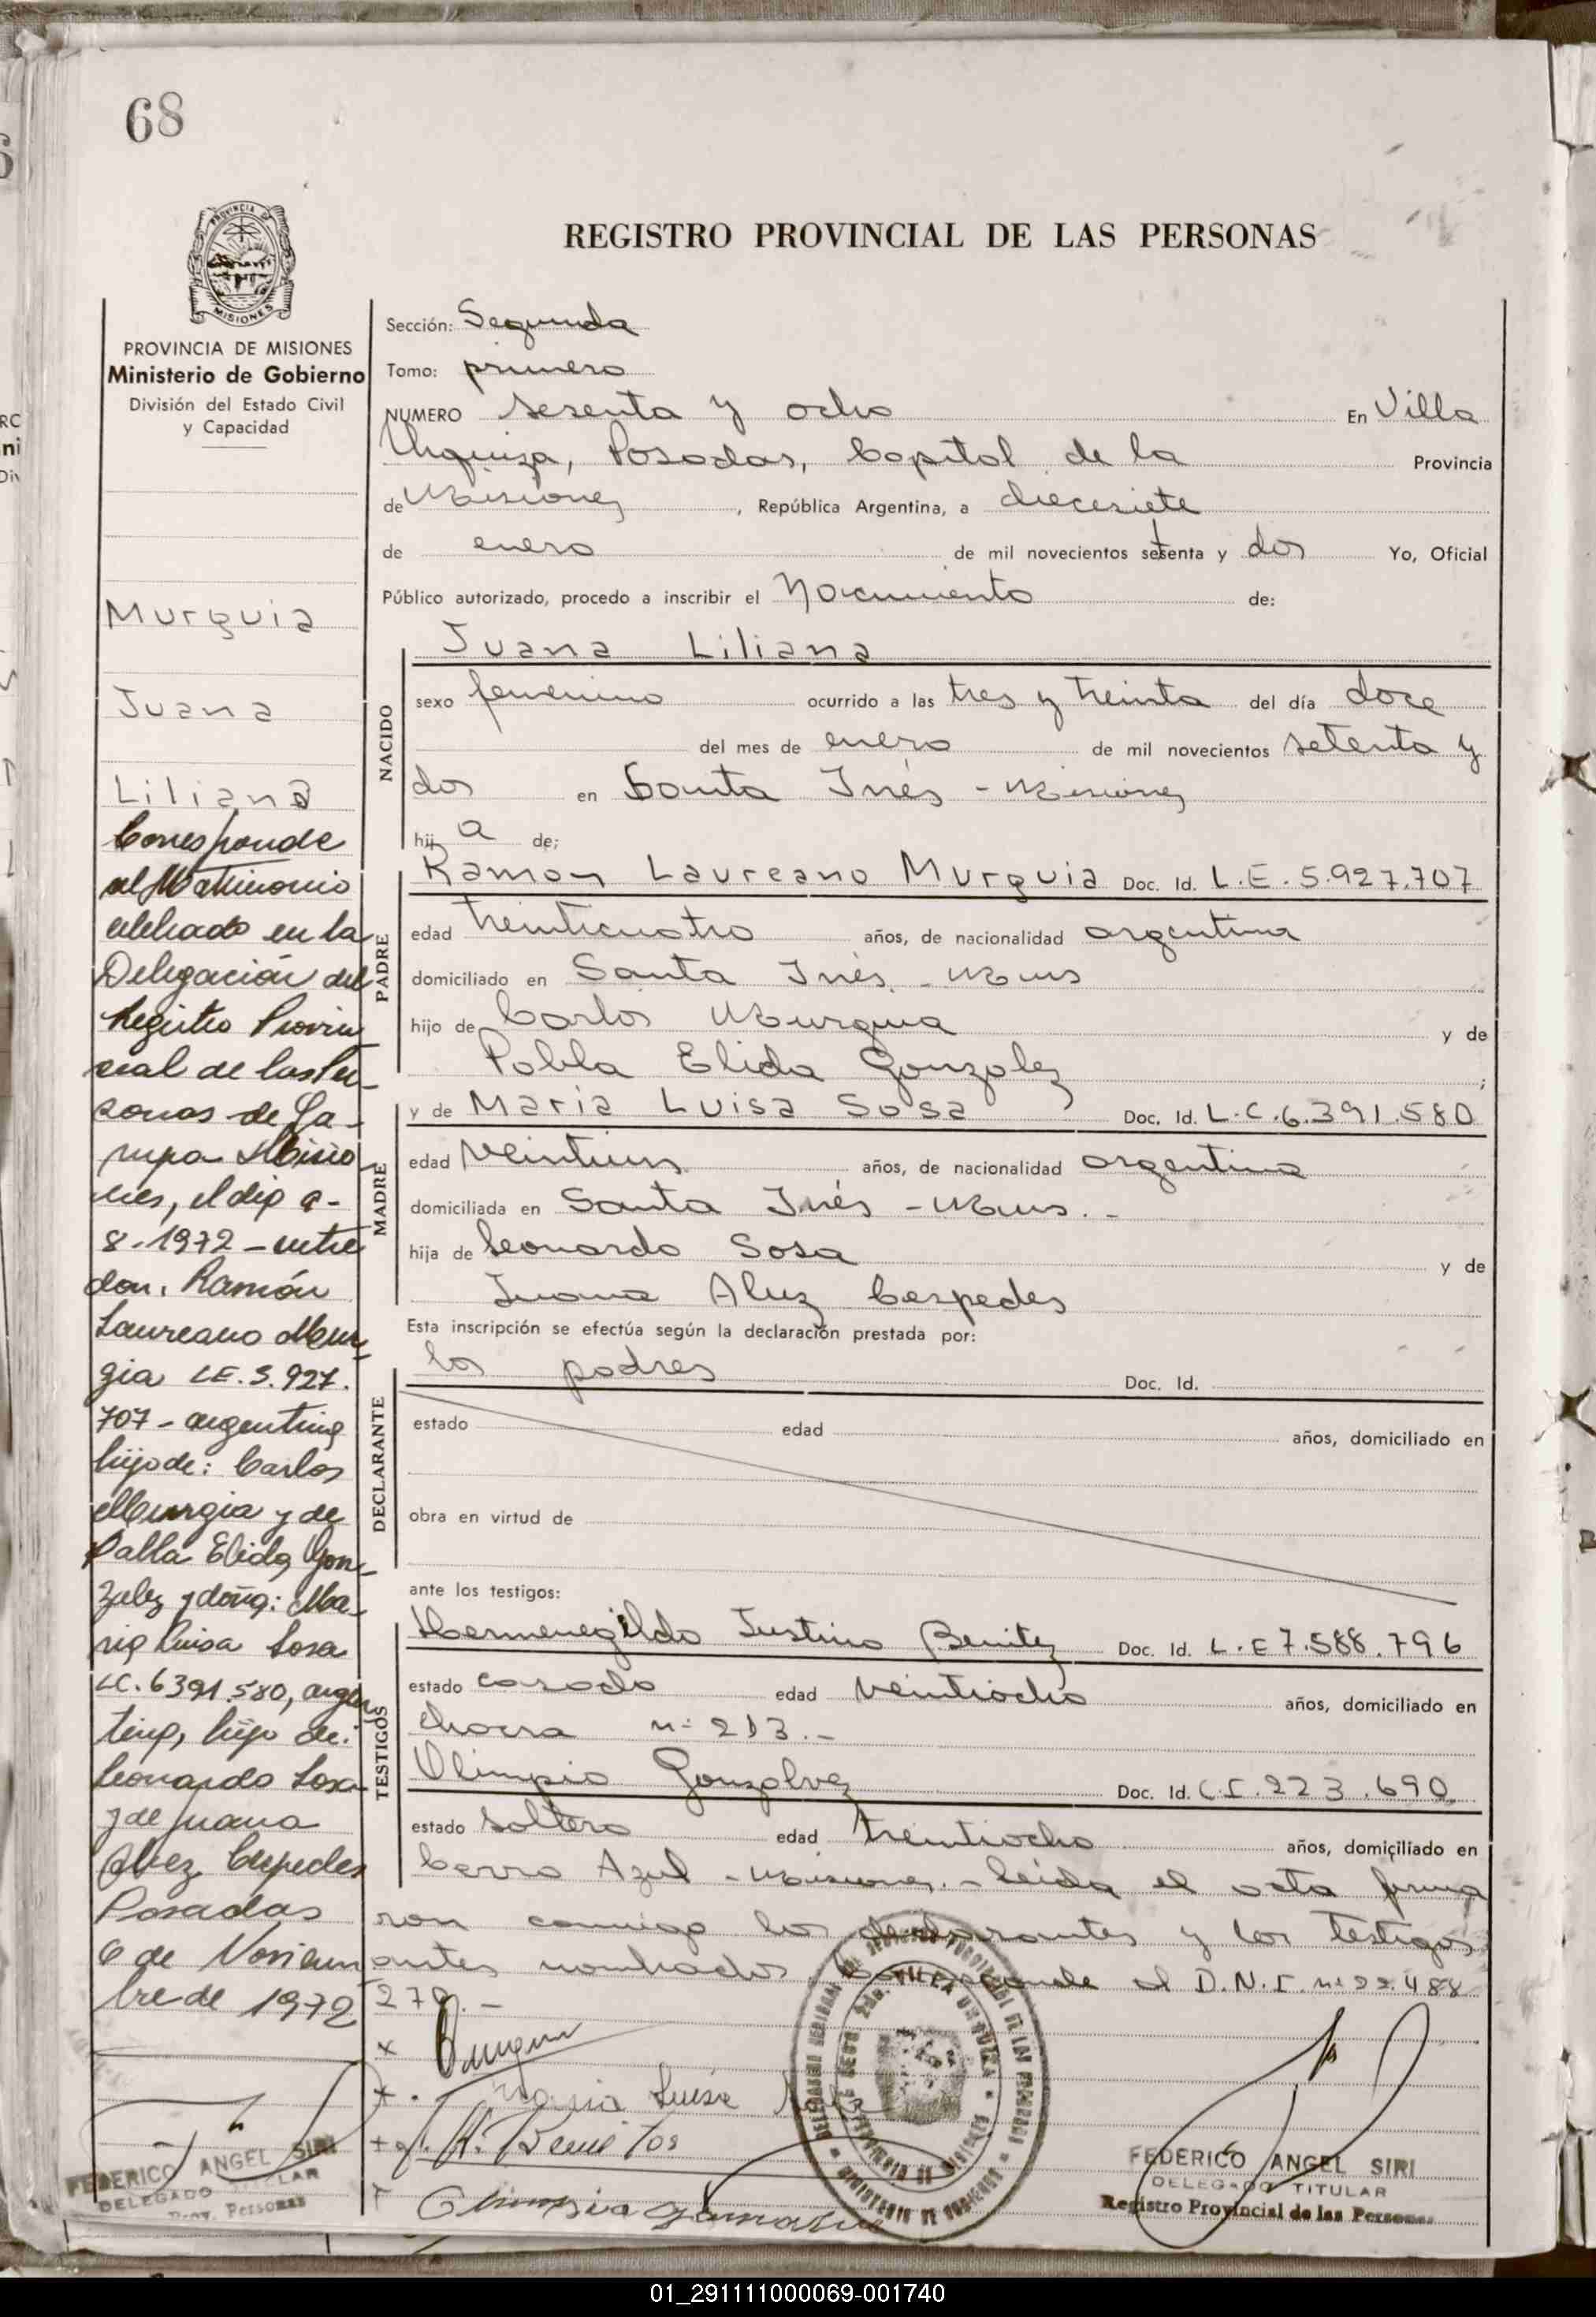 68
PROVINCIA DE
MISIONES
REGISTRO PROVINCIAL DE LAS PERSONAS
PROVINCIA DE MISIONES
Ministerio de Gobierno
División del Estado Civil
y Capacidad
Murguia
Juana
Liliana
Corresponde
al Matrimonio
celebrado en la
Delegación del
Registro Provin
cial de las Per-
sonas de Ga-
rupa Misio
nes, el dia 9-
8-1972 - entre
don. Ramón
Laureano Mur
gia LE. 5.927.
707 - argentino
hijo de: Carlos
Murgia y de
Pabla Elida Gon-
zalez y doña: Ma-
ria Luisa Sosa
LC. 6391.580, argen
tina, hija de:
Leonardo Sosa
y de Juana
Cespedes
Posadas
6 de Noviem
bre de 1972
FEDERICO ANGEL SIRI
DELEGADO TITULAR
Prov. Personas
Sección: Segunda
Tomo: primero
NUMERO sesenta y ocho En Villa
Urquiza, Posadas, Capital de la Provincia
de Misiones, República Argentina, a diecisiete
de enero de mil novecientos setenta y dos Yo, Oficial
Público autorizado, procedo a inscribir el Nacimiento de:
Juana Liliana
NACIDO
sexo femenino ocurrido a las tres y treinta del día doce
del mes de enero de mil novecientos setenta y
dos en Santa Inés - Misiones
hij a de;
PADRE
Ramon Laureano Murguia Doc. Id. L.E. 5.927.707
edad treinticuatro años, de nacionalidad argentina
domiciliado en Santa Inés - Mnes
hijo de Carlos Murguia y de
Pabla Elida Gonzalez ;
MADRE
y de Maria Luisa Sosa Doc. Id. L.C. 6.391.580
edad años, de nacionalidad argentina
domiciliada en Santa Inés - Mnes. -
hija de Leonardo Sosa y de
Juana Cespedes
Esta inscripción se efectúa según la declaración prestada por:
DECLARANTE
los padres Doc. Id.
estado edad años, domiciliado en
obra en virtud de
ante los testigos:
TESTIGOS
Hermenegildo Justino Benitez Doc. Id. L.E 7.588.796
estado casado edad veintiocho años, domiciliado en
chacra nº 213.-
Olimpio Gonzalvez Doc. Id. C.I. 223.690
estado soltero edad treintiocho años, domiciliado en
Cerro Azul - Misiones. - Leida el acta firma
ron conmigo los declarantes y los testigos
antes nombrados. Corresponde el D.N.I. nº 22.488
270. -
Maria Luisa
FEDERICO ANGEL SIRI
DELEGADO TITULAR
Registro Provincial de las Personas
01_291111000069-001740